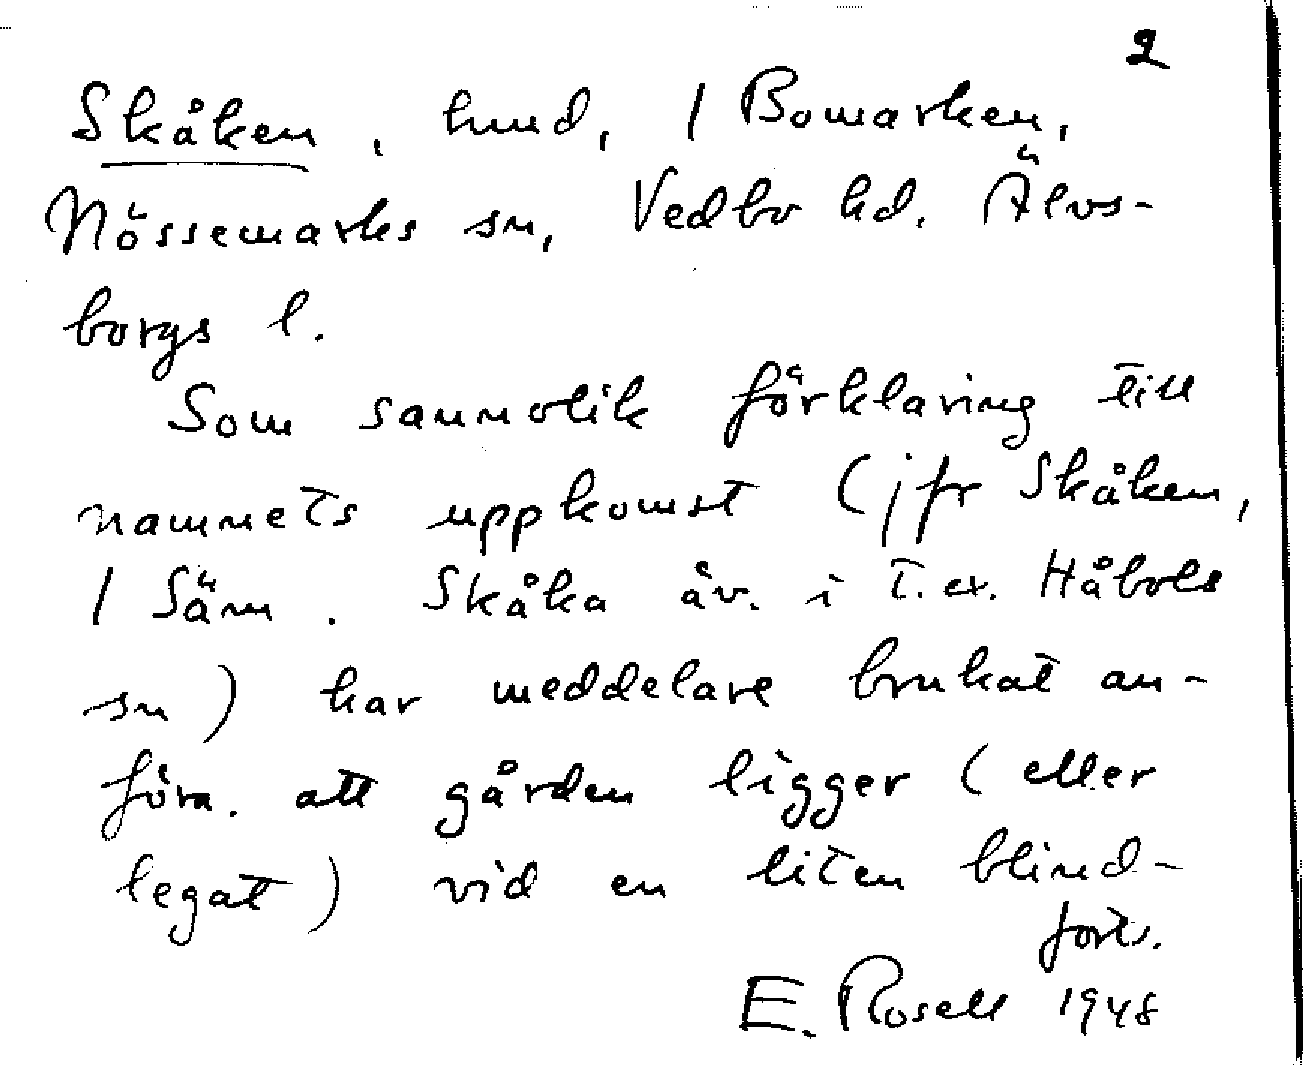 2
Skåken, hmd, 1 Bomarken,
Nössemarks sn, Vedbo hd. Älvs-
borgs l.
Som sannolik förklaring till
namnets uppkomst (jfr Skåken,
1 Säm. Skåka äv. i t.ex. Håbols
sn) har meddelare brukat an-
föra. att gården ligger (eller
legat) vid en liten blind-
forts.
E. Rosell 1948